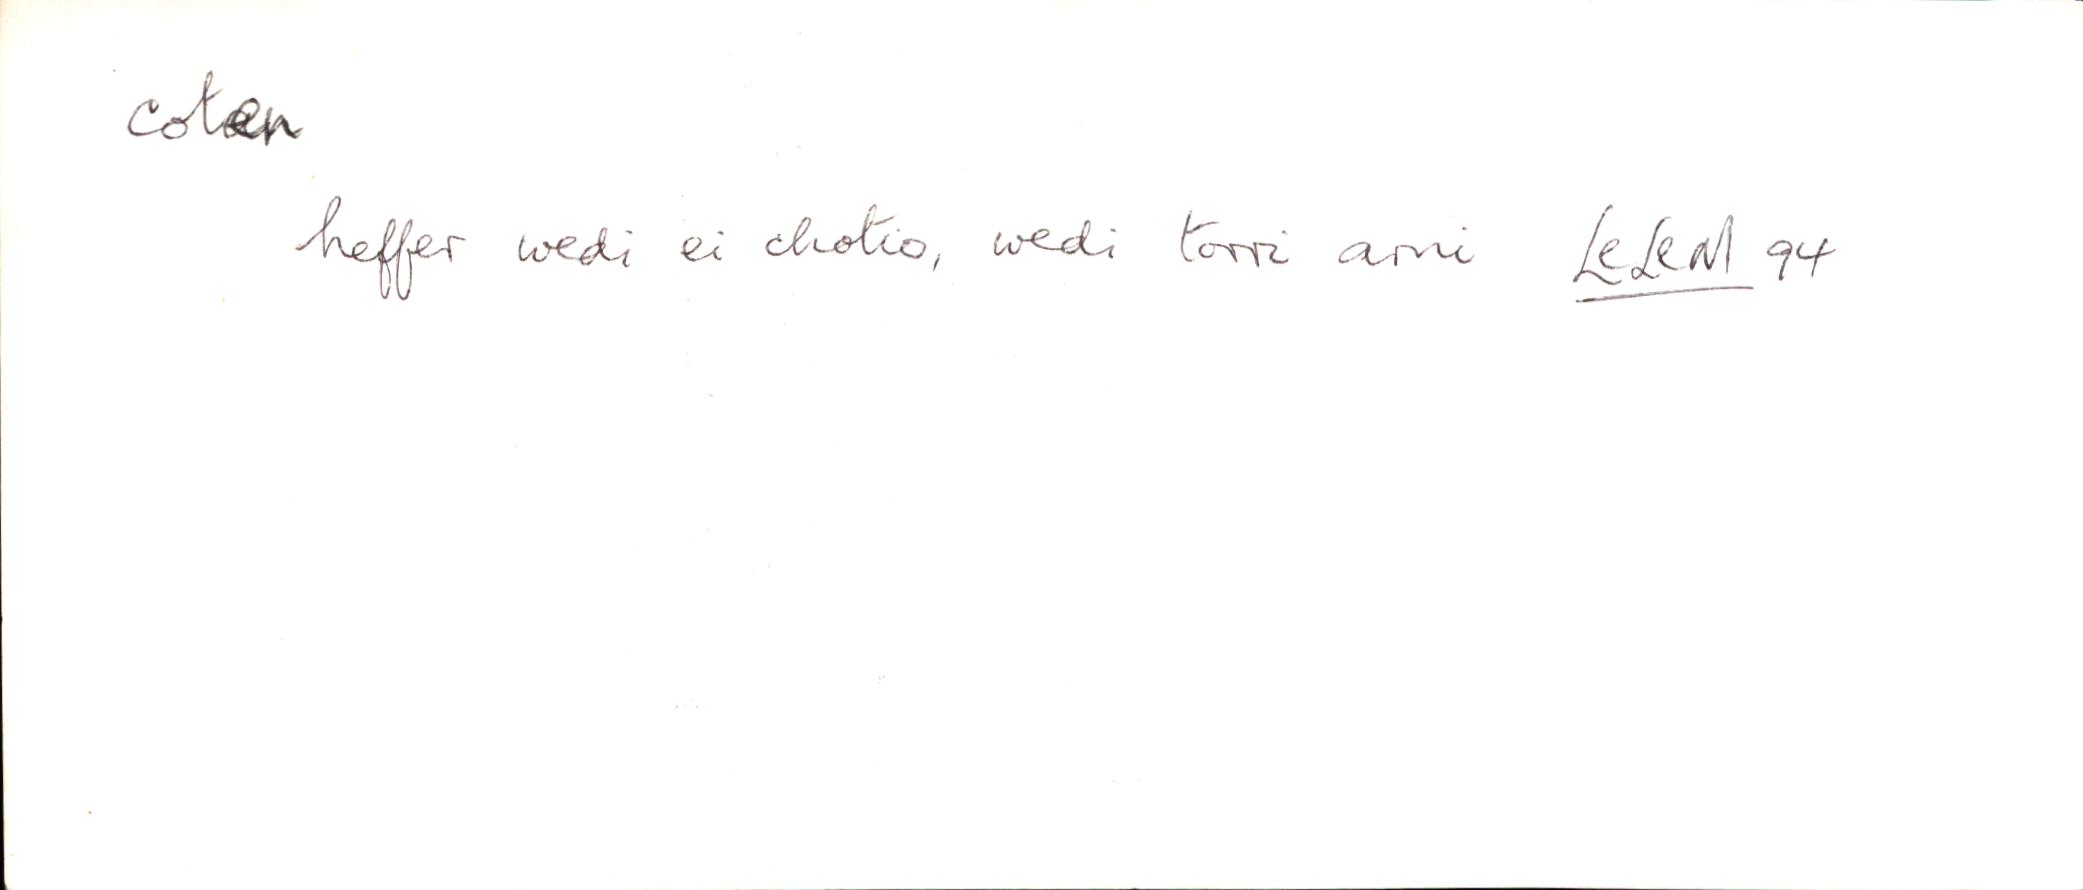 coten
heffer wedi ei chotio, wedi torri arni LeLeM 94